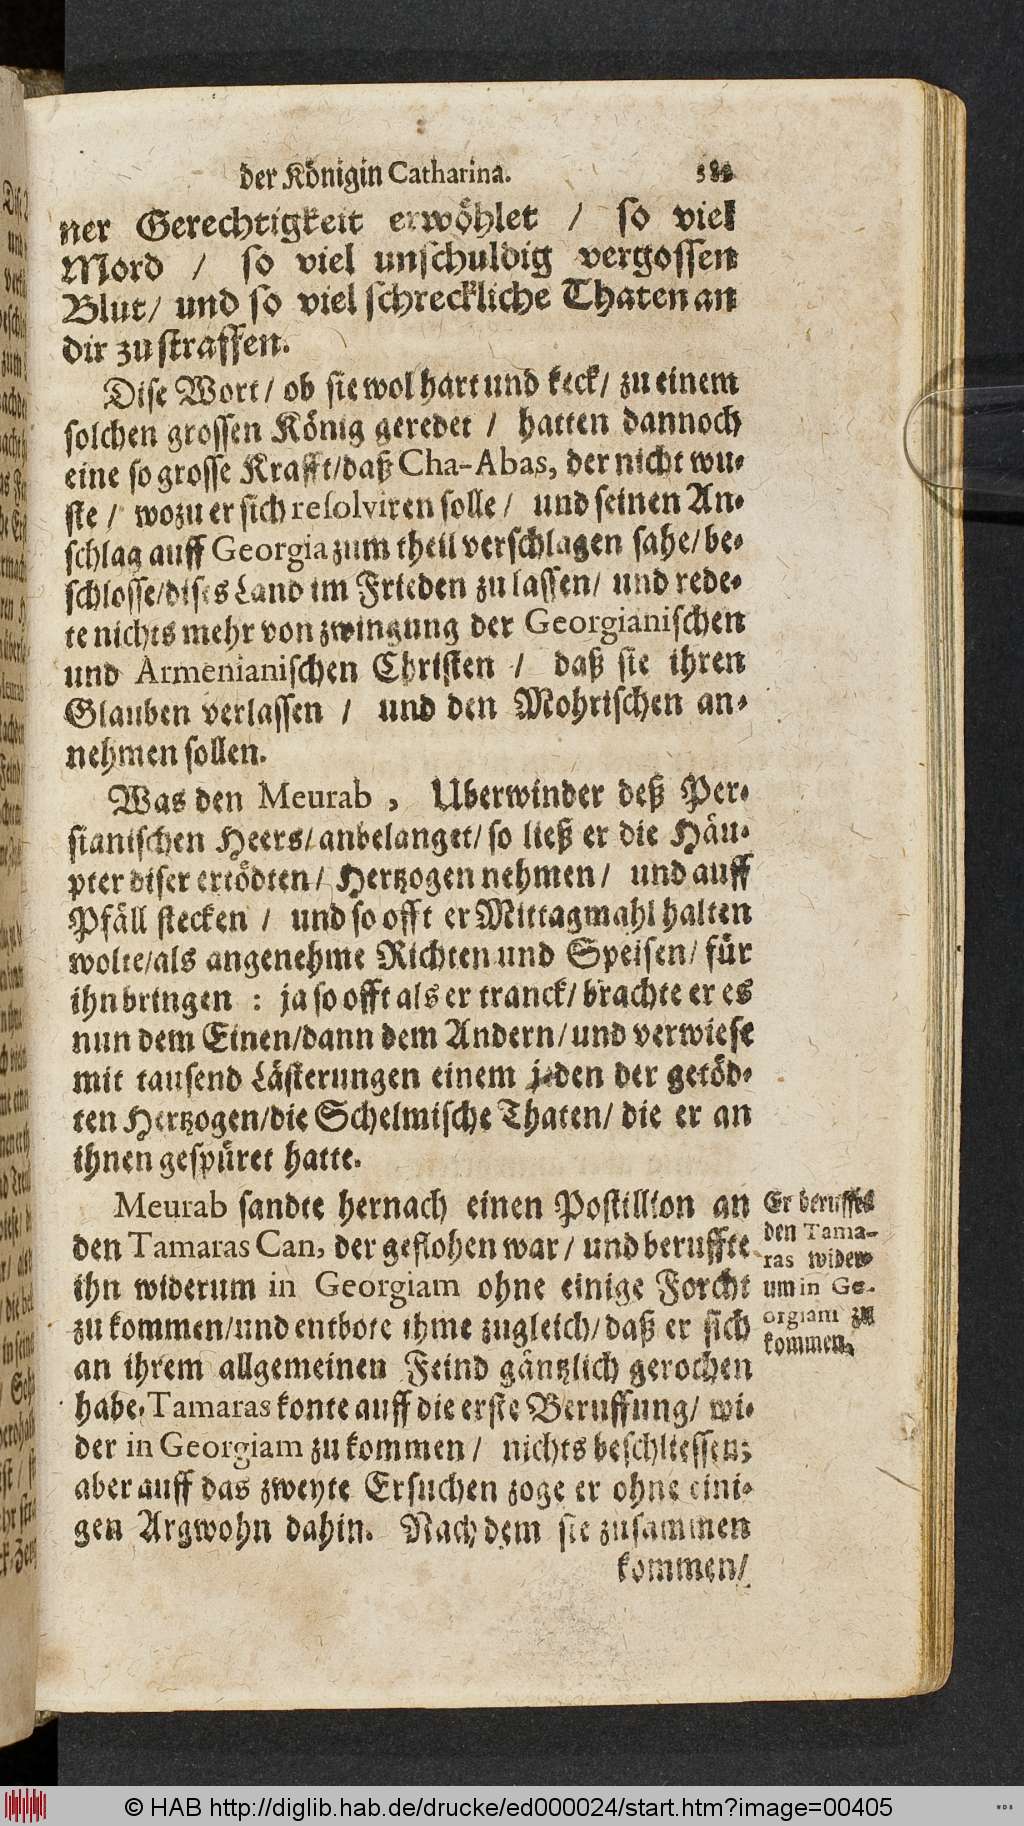 der Königin Catharina.
ner Gerechtigkeit erwöhlet / so viel
Mord / so viel unschuldig vergossen
Blut / und so viel schreckliche Thaten an
dir zu straffen.
Dise Wort / ob sie wol hart und keck / zu einem
solchen grossen König geredet / hatten dannoch
eine so grosse Krafft / daß Cha-Abas, der nicht wu-
ste / wozu er sich resolviren solle / und seinen An-
schlag auff Georgia zum theil verschlagen sahe / be-
schlosse / dises Land im Frieden zu lassen / und rede-
te nichts mehr von zwingung der Georgianischen
und Armenianischen Christen / daß sie ihren
Glauben verlassen / und den Mohrischen an-
nehmen sollen.
Was den Meurab, Uberwinder deß Per-
sianischen Heers / anbelanget / so ließ er die Häu-
pter diser ertödten / Hertzogen nehmen / und auff
Pfäll stecken / und so offt er Mittagmahl halten
wolte / als angenehme Richten und Speisen / für
ihn bringen : ja so offt als er tranck / brachte er es
nun dem Einen / dann dem Andern / und verwiese
mit tausend Lästerungen einem jeden der getöd-
ten Hertzogen / die Schelmische Thaten / die er an
ihnen gespüret hatte.
Meurab sandte hernach einen Postillion an
den Tamaras Can, der geflohen war / und beruffte
ihn widerum in Georgiam ohne einige Forcht
zu kommen / und entbote ihme zugleich / daß er sich
an ihrem allgemeinen Feind gäntzlich gerochen
habe. Tamaras konte auff die erste Beruffung / wi-
der in Georgiam zu kommen / nichts beschliessen;
aber auff das zweyte Ersuchen zoge er ohne eini-
gen Argwohn dahin. Nach dem sie zusammen
kommen /
Er beruffet
den Tama-
ras wider-
um in Ge-
orgiam zu
kommen.
© HAB http://diglib.hab.de/drucke/ed000024/start.htm?image=00405